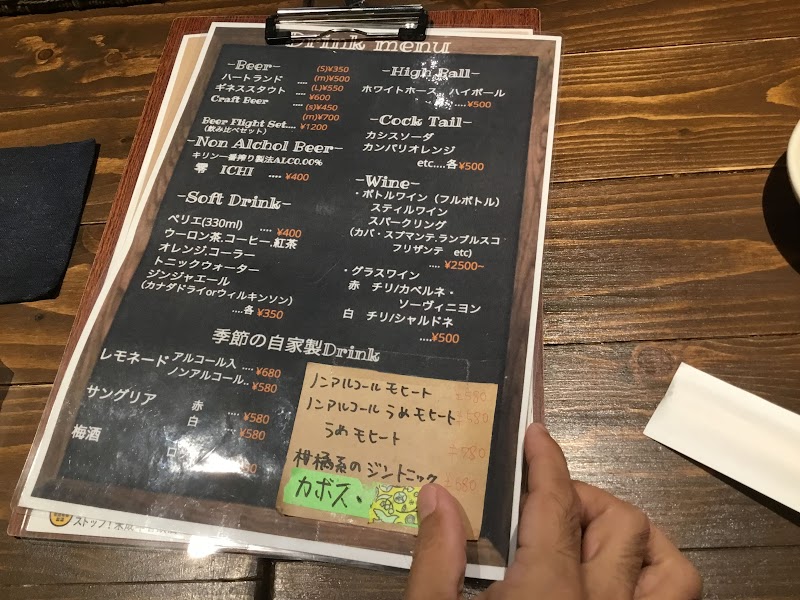 Drink menu
-Beer-
(S)¥350
ハートランド .... (m)¥500
ギネススタウト .... (L)¥550
¥600
Craft Beer .... (s)¥450
(m)¥700
Beer Flight Set.... ¥1200
(飲み比べセット)
-Non Alchol Beer-
キリン一番搾り製法ALC0.00%
零 ICHI .... ¥400
-Soft Drink-
ペリエ(330ml) .... ¥400
ウーロン茶.コーヒー.紅茶
オレンジ.コーラー
トニックウォーター
ジンジャエール
(カナダドライorウィルキンソン)
....各 ¥350
-High Ball-
ホワイトホース ハイボール
.... ¥500
-Cock Tail-
カシスソーダ
カンパリオレンジ
etc....各 ¥500
-Wine-
・ボトルワイン（フルボトル）
スティルワイン
スパークリング
(カバ・スプマンテ.ランブルスコ
フリザンテ etc)
.... ¥2500~
・グラスワイン
赤 チリ/カベルネ・
ソーヴィニヨン
白 チリ/シャルドネ
....¥500
季節の自家製Drink
レモネード アルコール入 .... ¥680
ノンアルコール.. ¥580
サングリア 赤 .... ¥580
白 .... ¥580
梅酒
ノンアルコール モヒート
ノンアルコール うめモヒート ¥580
うめ モヒート
柑橘系の ジントニック ¥680
カボス、